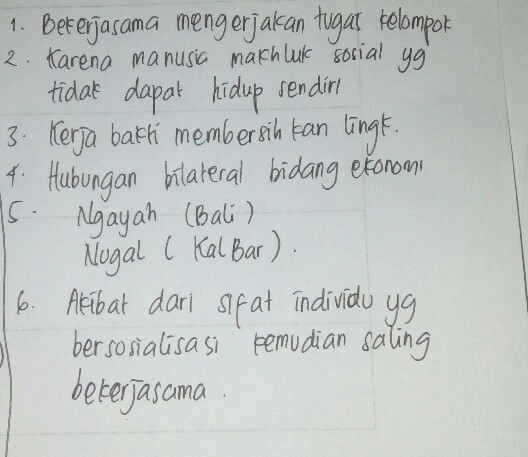 1. Bekerjasama mengerjakan tugas kelompok
2. Karena manusia makhluk sosial yg
tidak dapat hidup sendiri
3. Kerja bakti membersihkan lingk.
4. Hubungan bilateral bidang ekonomi
5. Ngayah (Bali)
Nugal (KalBar).
6. Akibat dari sifat individu yg
bersosialisasi kemudian saling
bekerjasama.